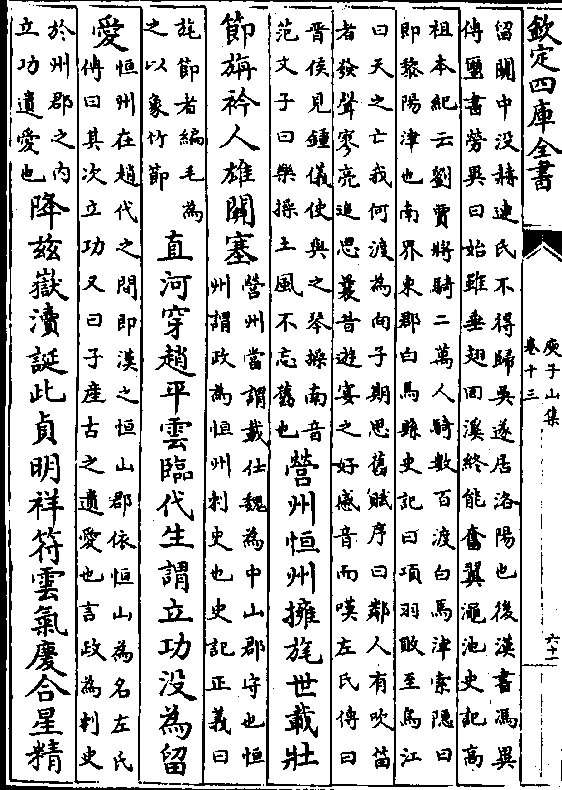 欽定四庫全書
留關中没赫連氏不得歸吳遂居洛陽也後漢書馮異
傳璽書勞異曰始雖垂翅回溪終能奮翼澠池史記高
祖本紀云劉賈將騎二萬人騎數百渡白馬津索隱曰
即黎陽津也南界東郡白馬縣史記曰項羽敗至烏江
曰天之亡我何渡為向子期思舊賦序曰鄰人有吹笛
者發聲寥亮追思曩昔遊宴之好感音而嘆左氏傳曰
晉侯見鍾儀使與之琴操南音
范文子曰樂操土風不忘舊也
營州恒州擁旄世載壯
節旃衿人雄關塞
營州當謂載仕魏為中山郡守也恒
州謂政為恒州刺史也史記正義曰
旄節者編毛為
之以象竹節
直河穿趙平雲臨代生謂立功没為留
愛
恒州在趙代之間即漢之恒山郡依恒山為名左氏
傳曰其次立功又曰子產古之遺愛也言政為刺史
於州郡之内
立功遺愛也
降兹嶽瀆誕此貞明祥符雲氣慶合星精
庾子山集
卷十三
六十一